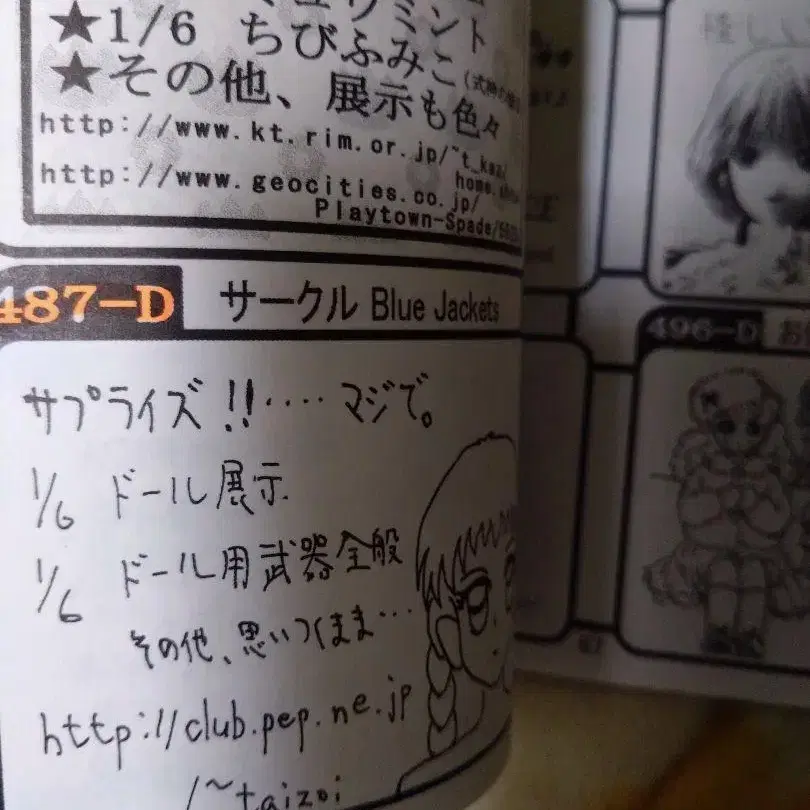 ミント
★1/6 ちびふみこ
★その他、展示も色々
http://www.kt.rim.or.jp/~t_kaz/
http://www.geocities.co.jp/
Playtown-Spade/
487-D サークル Blue Jackets
サプライズ!!‥‥マジで。
1/6 ドール展示
1/6 ドール用武器全般
その他、思いつくまま…
http://club.pep.ne.jp
/~taizoi
496-D